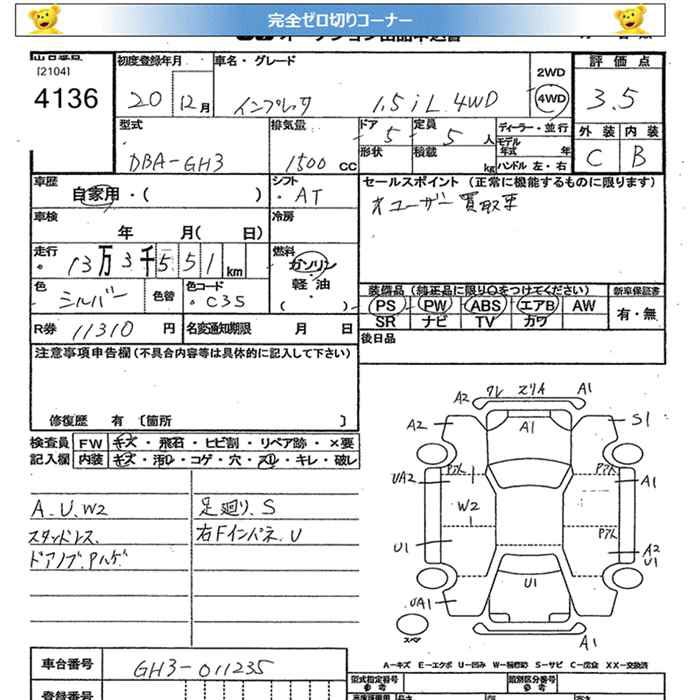 完全ゼロ切りコーナー
[2104]
4136
初度登録年月
20 12月
車名・グレード
インプレッサ 1.5iL 4WD
2WD
4WD
評価点
3.5
外装 内装
C B
型式
DBA-GH3
排気量
1500 CC
ドア 5
形状
定員 5 人
積載 kg
ディーラー・並行
モデル年式 年
ハンドル 左・右
車歴
自家用・( )
シフト
・AT
セールスポイント (正常に機能するものに限ります)
オユーザー買取車
車検
年 月( 日)
冷房
走行
13万3千551km
燃料
ガソリン
・軽油・
( )
色
シルバー
色替
色コード
C35
装備品(純正品に限り○をつけてください)
PS PW ABS エアB AW
SR ナビ TV カワ
新車保証書
有・無
R券 11310 円
名変通知期限 月 日
後日品
注意事項申告欄(不具合内容等は具体的に記入して下さい)
修復歴 有 〔箇所 〕
検査員記入欄
FW キズ・飛石・ヒビ割・リペア跡・×要
内装 キズ・汚れ・コゲ・穴・スレ・キレ・破レ
A.U.W2
スタッドレス
ドアノブ.Pハゲ
足廻り.S
右Fインパネ.U
A2 ワレ スリA A1
A2 A1 S1
UA2 Pアト Pアト A1
W2
Pアト
U1 A2 U1
UA1 U1
スペア A1
A-キズ E-エクボ U-凹み W-補修跡 S-サビ C-腐食 XX-交換済
車台番号
GH3-011235
登録番号
型式指定番号
参考
類別区分番号
参考